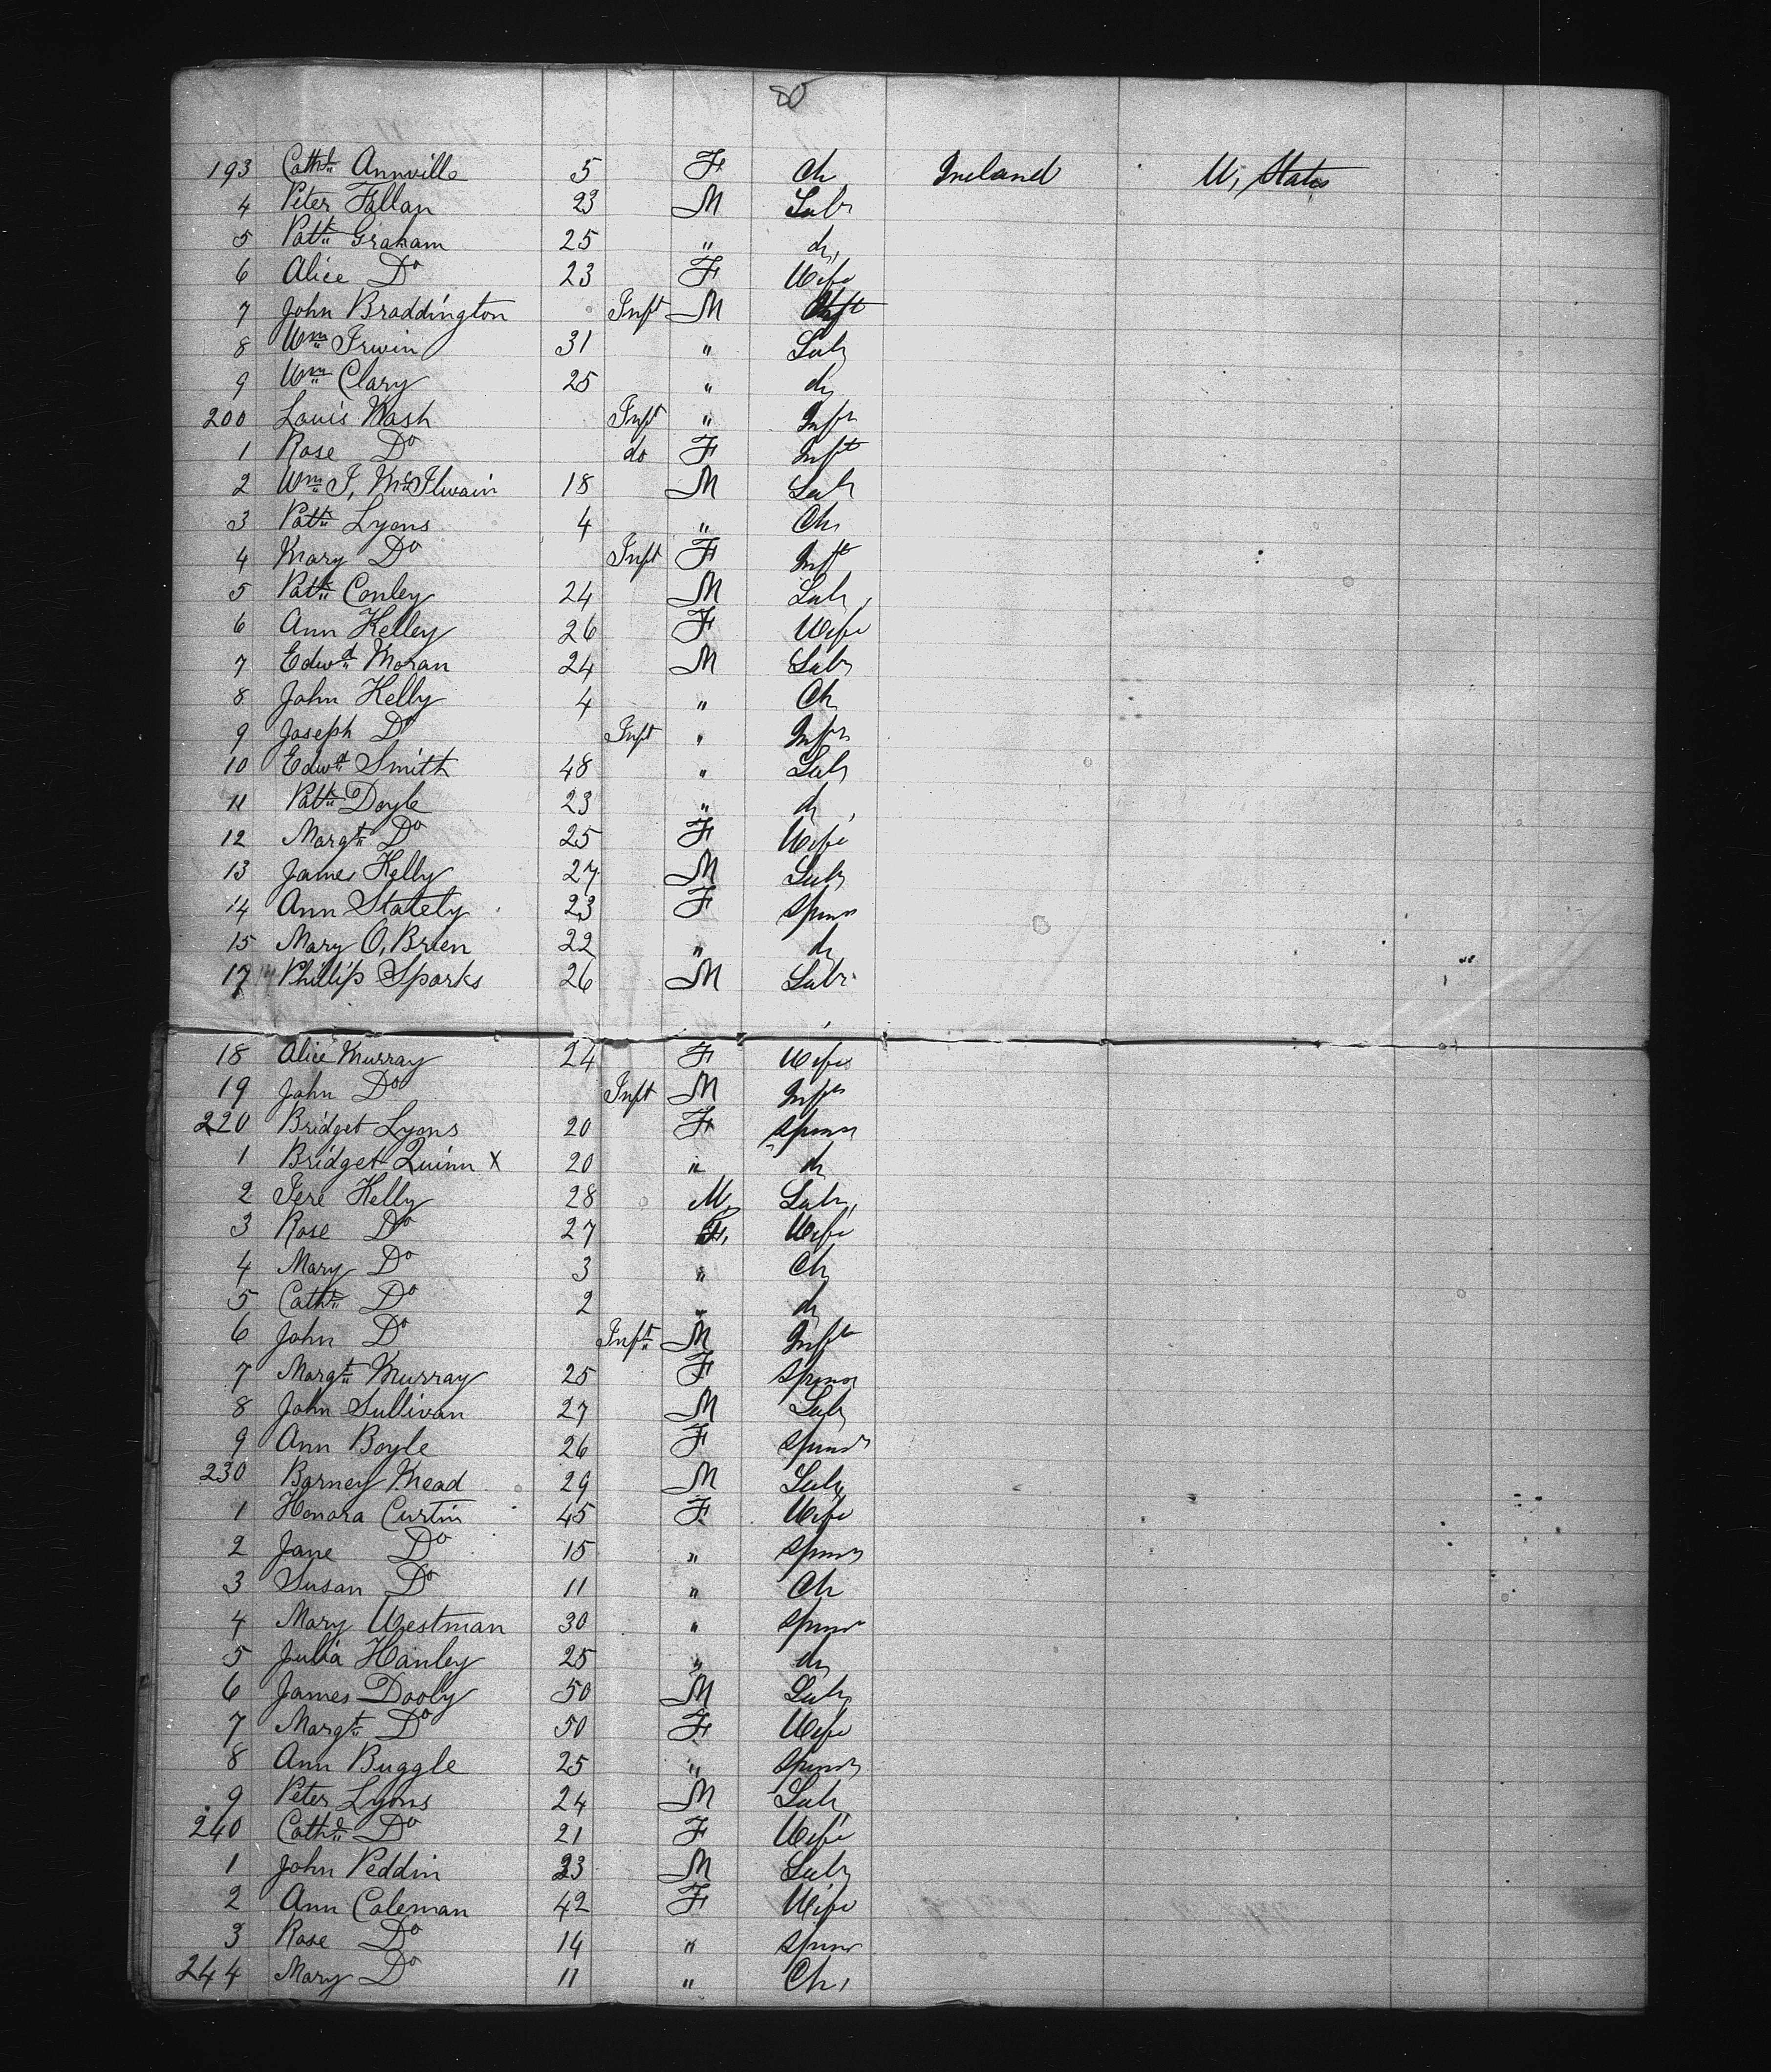 50
193 Cathe Annville 5 F Ch Ireland U, States
4 Peter Fallan 23 M Labr
5 Patk Graham 25 " do
6 Alice Do 23 F Wife
7 John Braddington Inft M Inft
8 Wm Irwin 31 " Labr
9 Wm Clary 25 " do
200 Louis Wash Inft " Inft
1 Rose Do do F Inft
2 Wm J, McIlwain 18 M Labr
3 Patk Lyons 4 " Ch
4 Mary Do Inft F Inft
5 Patk Conley 24 M Labr
6 Ann Kelley 26 F Wife
7 Edwd Moran 24 M Labr
8 John Kelly 4 " Ch
9 Joseph Do Inft " Inft
10 Edwd Smith 48 " Labr
11 Patk Doyle 23 " do
12 Margt Do 25 F Wife
13 James Kelly 27 M Labr
14 Ann Stately 23 F Spinr
15 Mary O,Brien 22 " do
17 Phillip Sparks 26 M Labr
18 Alice Murray 24 F Wife
19 John Do Inft M Inft
220 Bridget Lyons 20 F Spinr
1 Bridget Quinn x 20 " do
2 Jere Kelly 28 M, Labr,
3 Rose Do 27 F, Wife
4 Mary Do 3 " Ch
5 Cathe Do 2 " do
6 John Do Inft M Inft
7 Margt Murray 25 F Spinr
8 John Sullivan 27 M Labr
9 Ann Boyle 26 F Spinr
230 Barney Mead 29 M Labr
1 Honora Curtin 45 F Wife
2 Jane Do 15 " Spinr
3 Susan Do 11 " Ch
4 Mary Westman 30 " Spinr
5 Julia Hanley 25 " do
6 James Dooly 50 M Labr
7 Margt Do 50 F Wife
8 Ann Buggle 25 " Spinr
9 Peter Lyons 24 M Labr
240 Cathe Do 21 F Wife
1 John Peddin 33 M Labr
2 Ann Coleman 42 F Wife
3 Rose Do 14 " Spinr
244 Mary Do 11 " Ch,